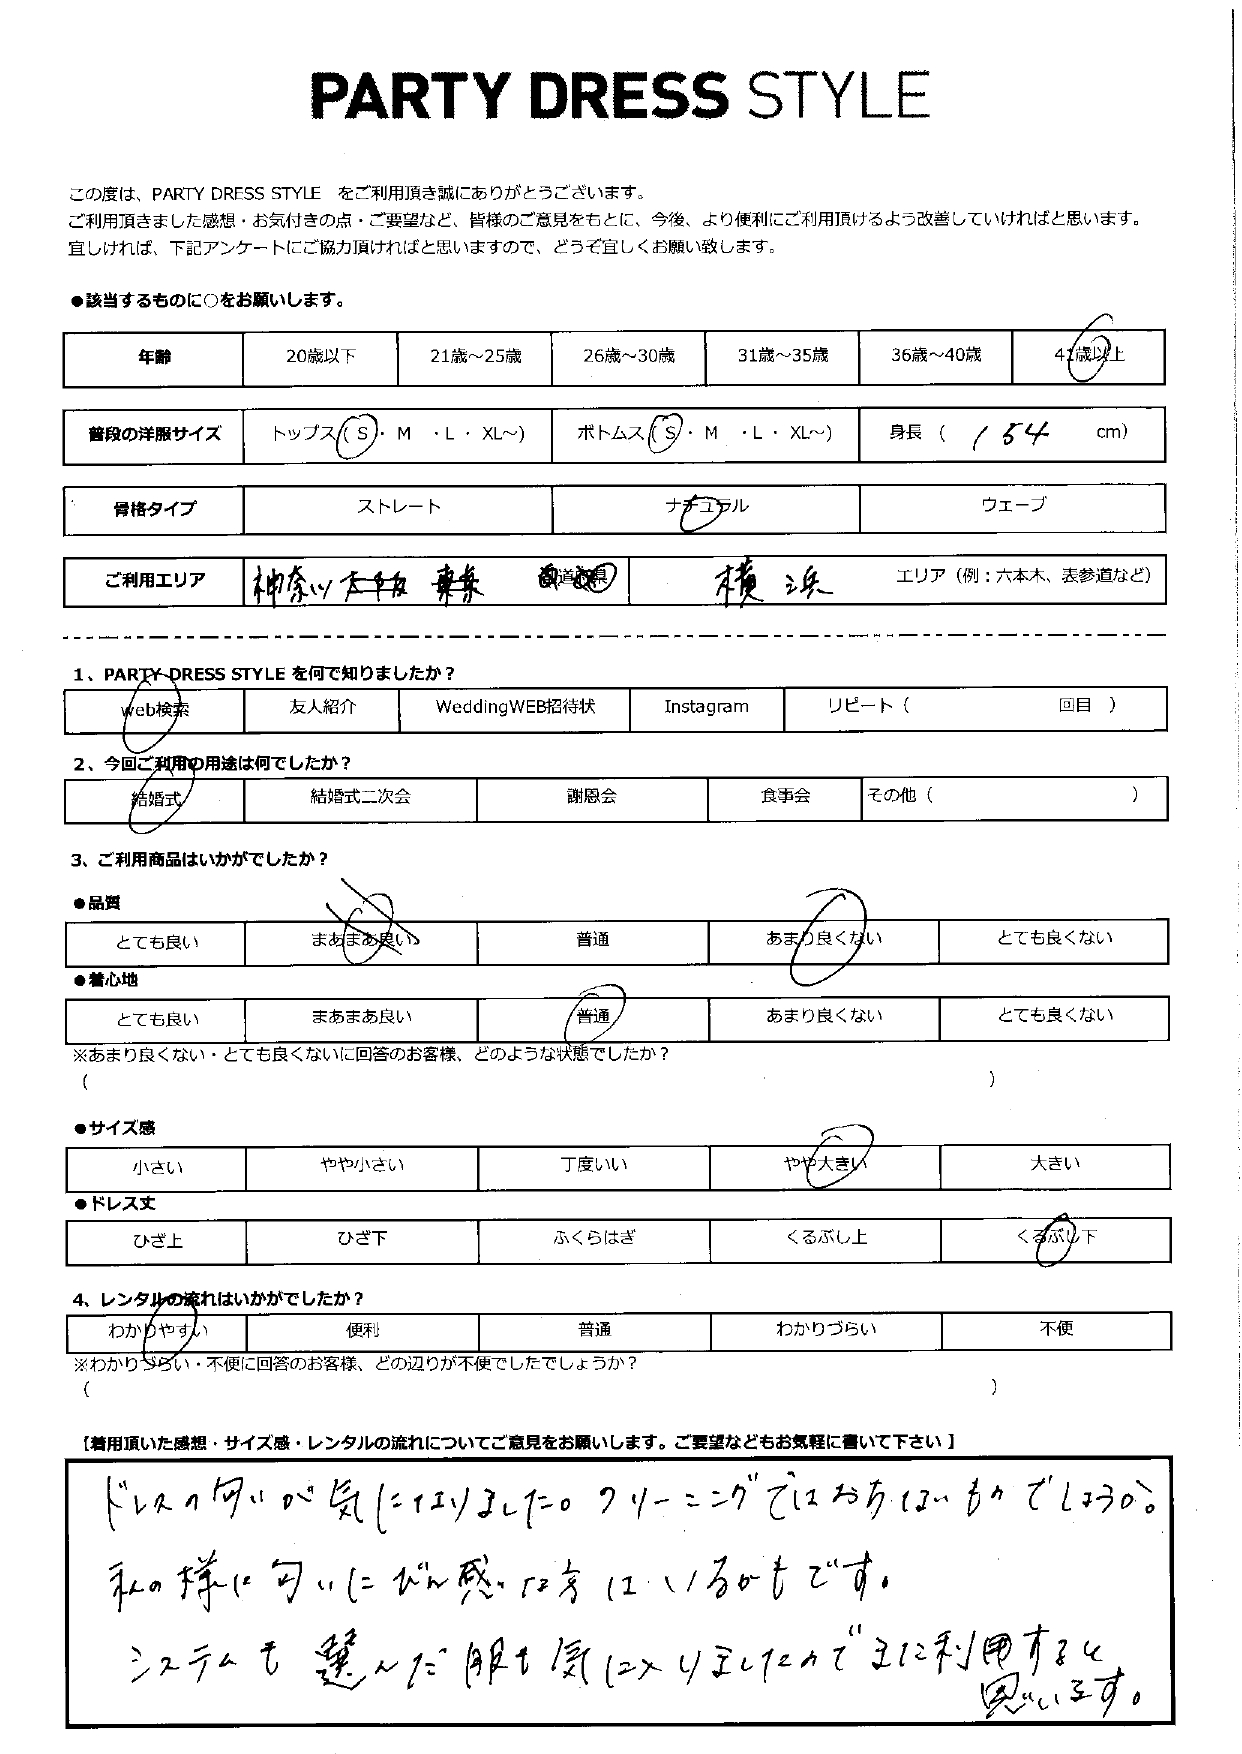 PARTY DRESS STYLE
この度は、PARTY DRESS STYLE をご利用頂き誠にありがとうございます。
ご利用頂きました感想・お気付きの点・ご要望など、皆様のご意見をもとに、今後、より便利にご利用頂けるよう改善していければと思います。
宜しければ、下記アンケートにご協力頂ければと思いますので、どうぞ宜しくお願い致します。
●該当するものに○をお願いします。
年齢 20歳以下 21歳～25歳 26歳～30歳 31歳～35歳 36歳～40歳 41歳以上
普段の洋服サイズ トップス( S ・ M ・ L ・ XL～) ボトムス( S ・ M ・ L ・ XL～) 身長 ( 154 cm)
骨格タイプ ストレート ナチュラル ウェーブ
ご利用エリア 神奈川 道 県 横浜 エリア（例：六本木、表参道など）
1、PARTY DRESS STYLE を何で知りましたか？
web検索 友人紹介 WeddingWEB招待状 Instagram リピート（ 回目 ）
2、今回ご利用の用途は何でしたか？
結婚式 結婚式二次会 謝恩会 食事会 その他（ ）
3、ご利用商品はいかがでしたか？
●品質
とても良い まあまあ良い 普通 あまり良くない とても良くない
●着心地
とても良い まあまあ良い 普通 あまり良くない とても良くない
※あまり良くない・とても良くないに回答のお客様、どのような状態でしたか？
( )
●サイズ感
小さい やや小さい 丁度いい やや大きい 大きい
●ドレス丈
ひざ上 ひざ下 ふくらはぎ くるぶし上 くるぶし下
4、レンタルの流れはいかがでしたか？
わかりやすい 便利 普通 わかりづらい 不便
※わかりづらい・不便に回答のお客様、どの辺りが不便でしたでしょうか？
( )
【着用頂いた感想・サイズ感・レンタルの流れについてご意見をお願いします。ご要望などもお気軽に書いて下さい】
ドレスの匂いが気になりました。クリーニングではおちないものでしょうか。
私の様に匂いにびん感な方はいるかもです。
システムも選んだ服も気に入りましたのでまた利用すると
思います。